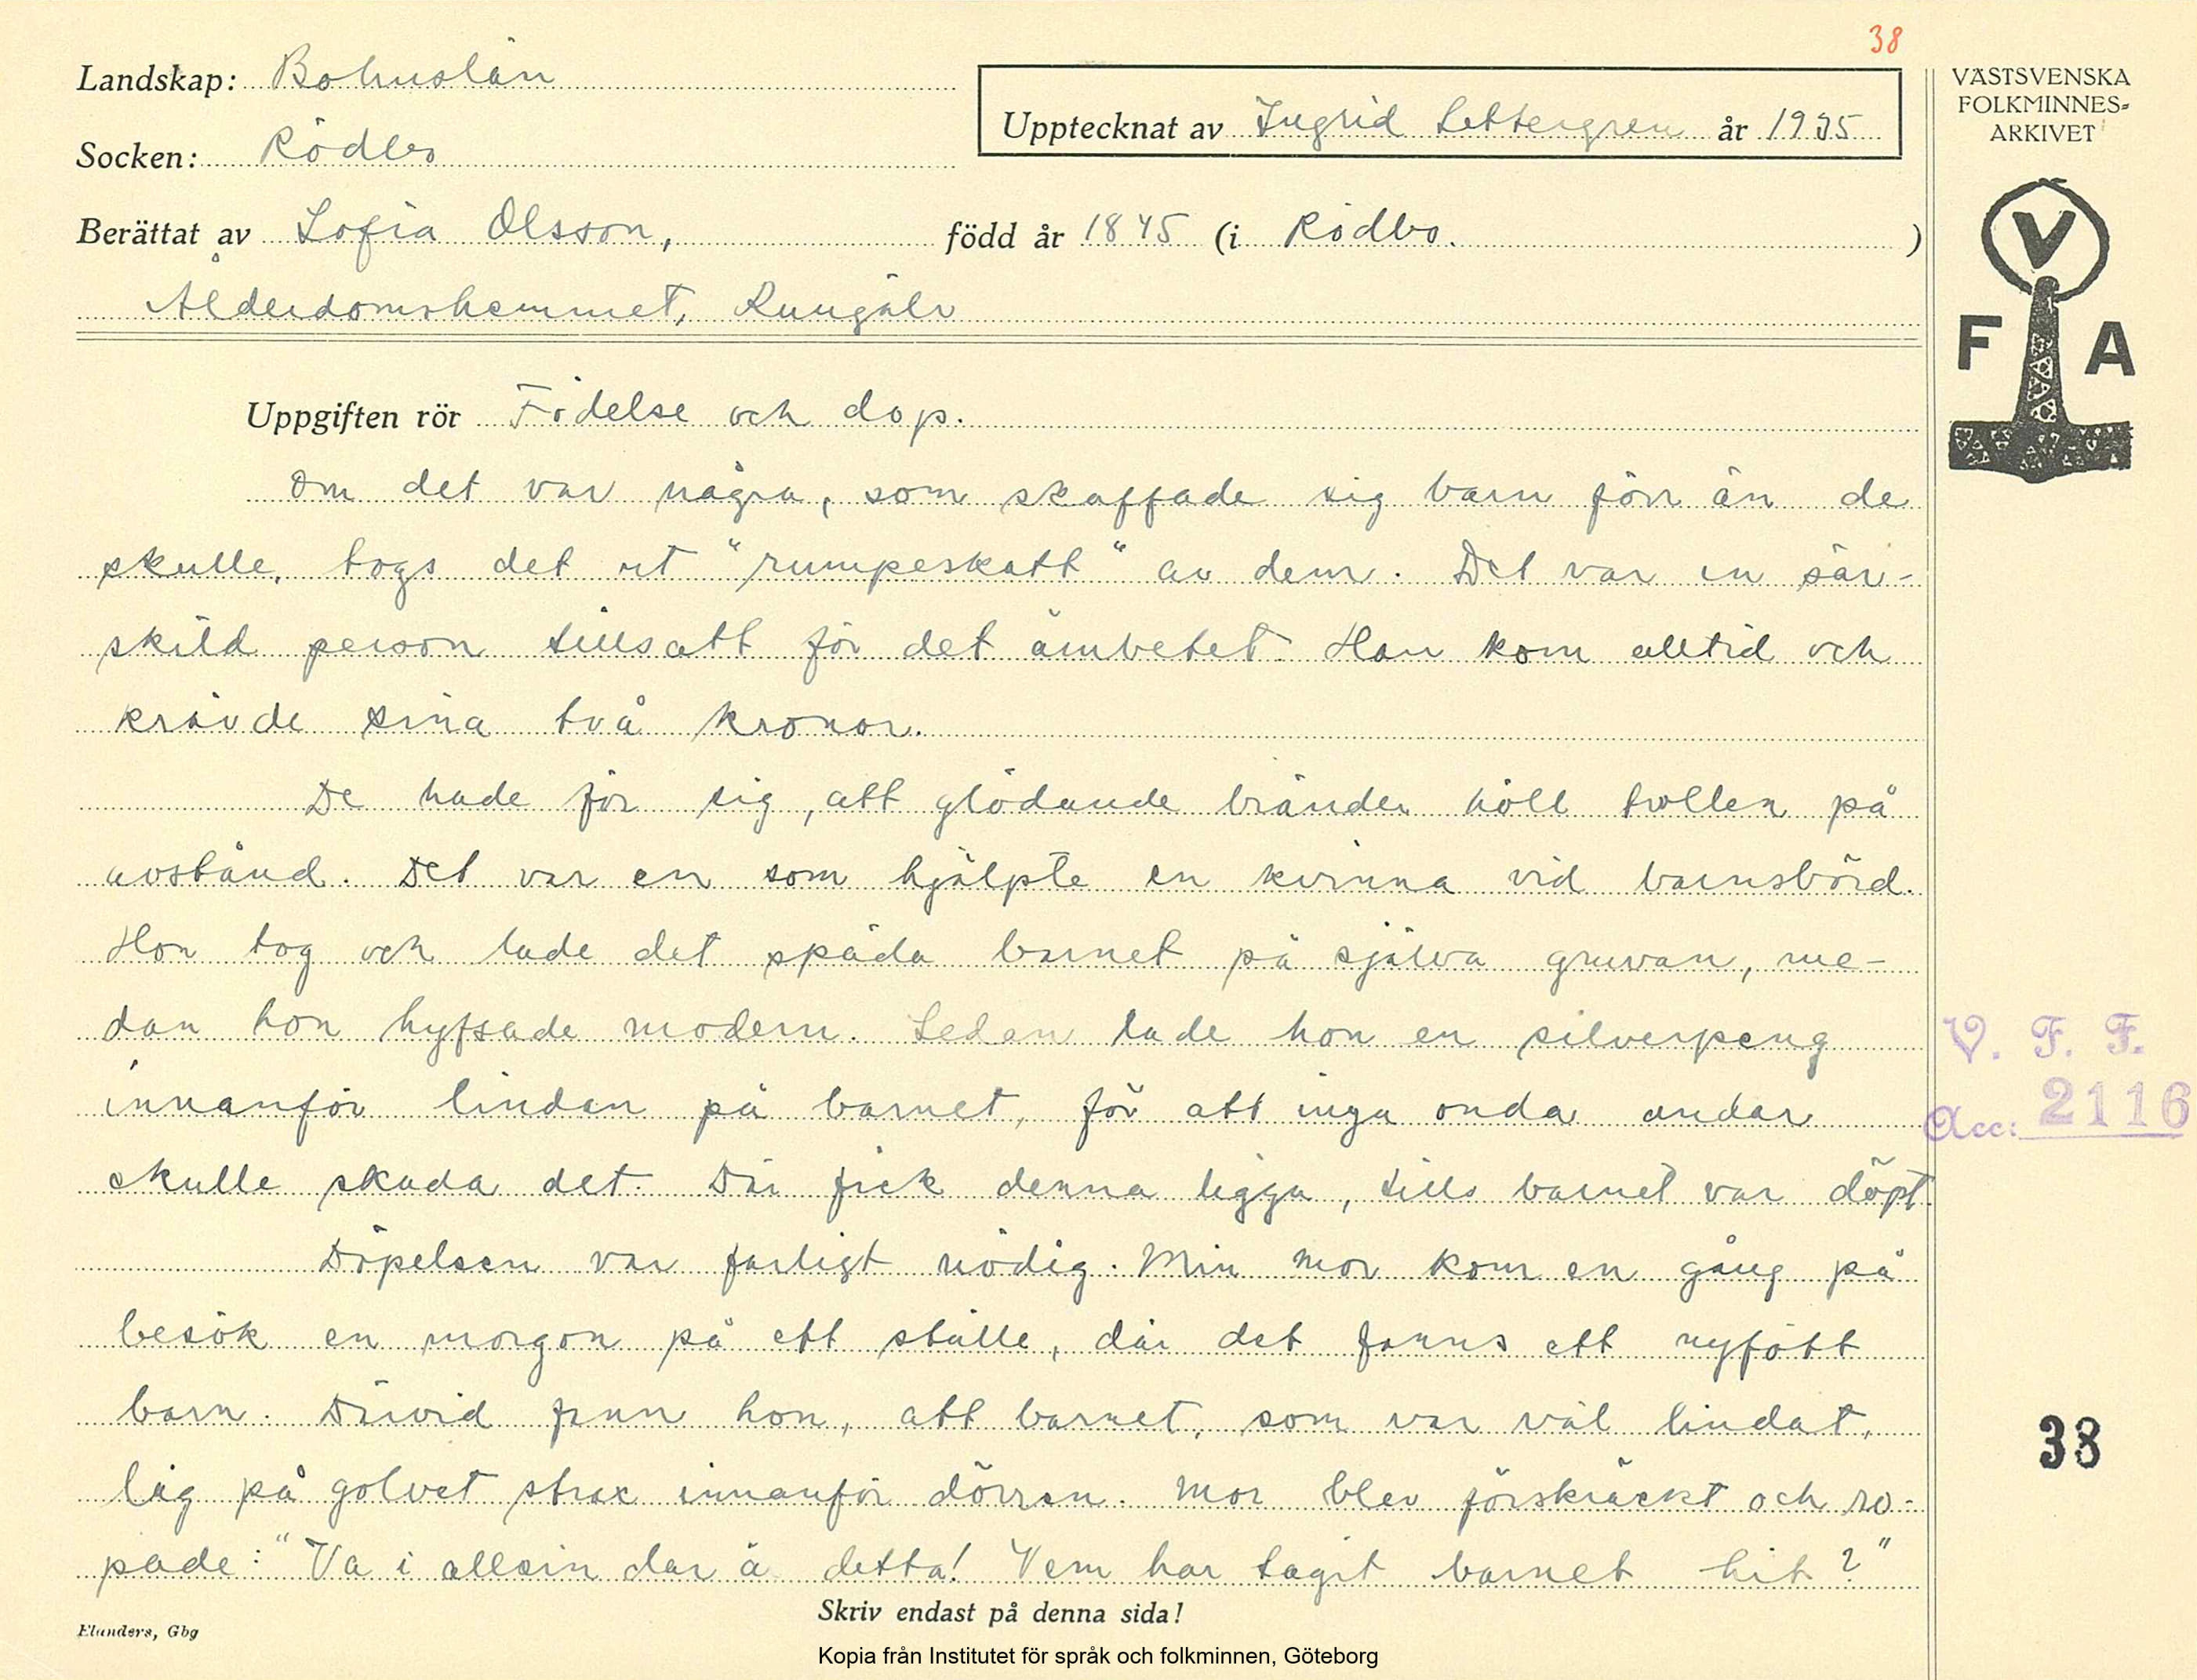 38
Landskap: Bohuslän
VÄSTSVENSKA
FOLKMINNES-
ARKIVET
Upptecknat av Ingrid Settergren år 1935
Socken: Rödbo
Berättat av Sofia Olsson, född år 1845 (i Rödbo. )
Ålderdomshemmet, Kungälv
V
F A
Uppgiften rör Födelse och dop.
Om det var några, som skaffade sig barn förr än de
skulle, togs det ut "rumpeskatt" av dem. Det var en sär-
skild person tillsatt för det ämbetet. Han kom alltid och
krävde sina två kronor.
De hade för sig, att glödande bränder höll trollen på
avstånd. Det var en som hjälpte en kvinna vid barnsbörd.
Hon tog och lade det späda barnet på själva gruvan, me-
dan hon hyfsade modern. Sedan lade hon en silverpeng
innanför lindan på barnet, för att inga onda andar
skulle skada det. Där fick denna ligga, tills barnet var döpt.
Döpelsen var farligt nödig. Min mor kom en gång på
besök en morgon på ett ställe, där det fanns ett nyfött
barn. Därvid fann hon, att barnet, som var väl lindat,
låg på golvet strax innanför dörren. Mor blev förskräckt och ro-
pade: "Va i allsin dar ä detta! Vem har tagit barnet hit?"
V. F. F.
Acc: 2116
38
Skriv endast på denna sida!
Elanders, Gbg
Kopia från Institutet för språk och folkminnen, Göteborg